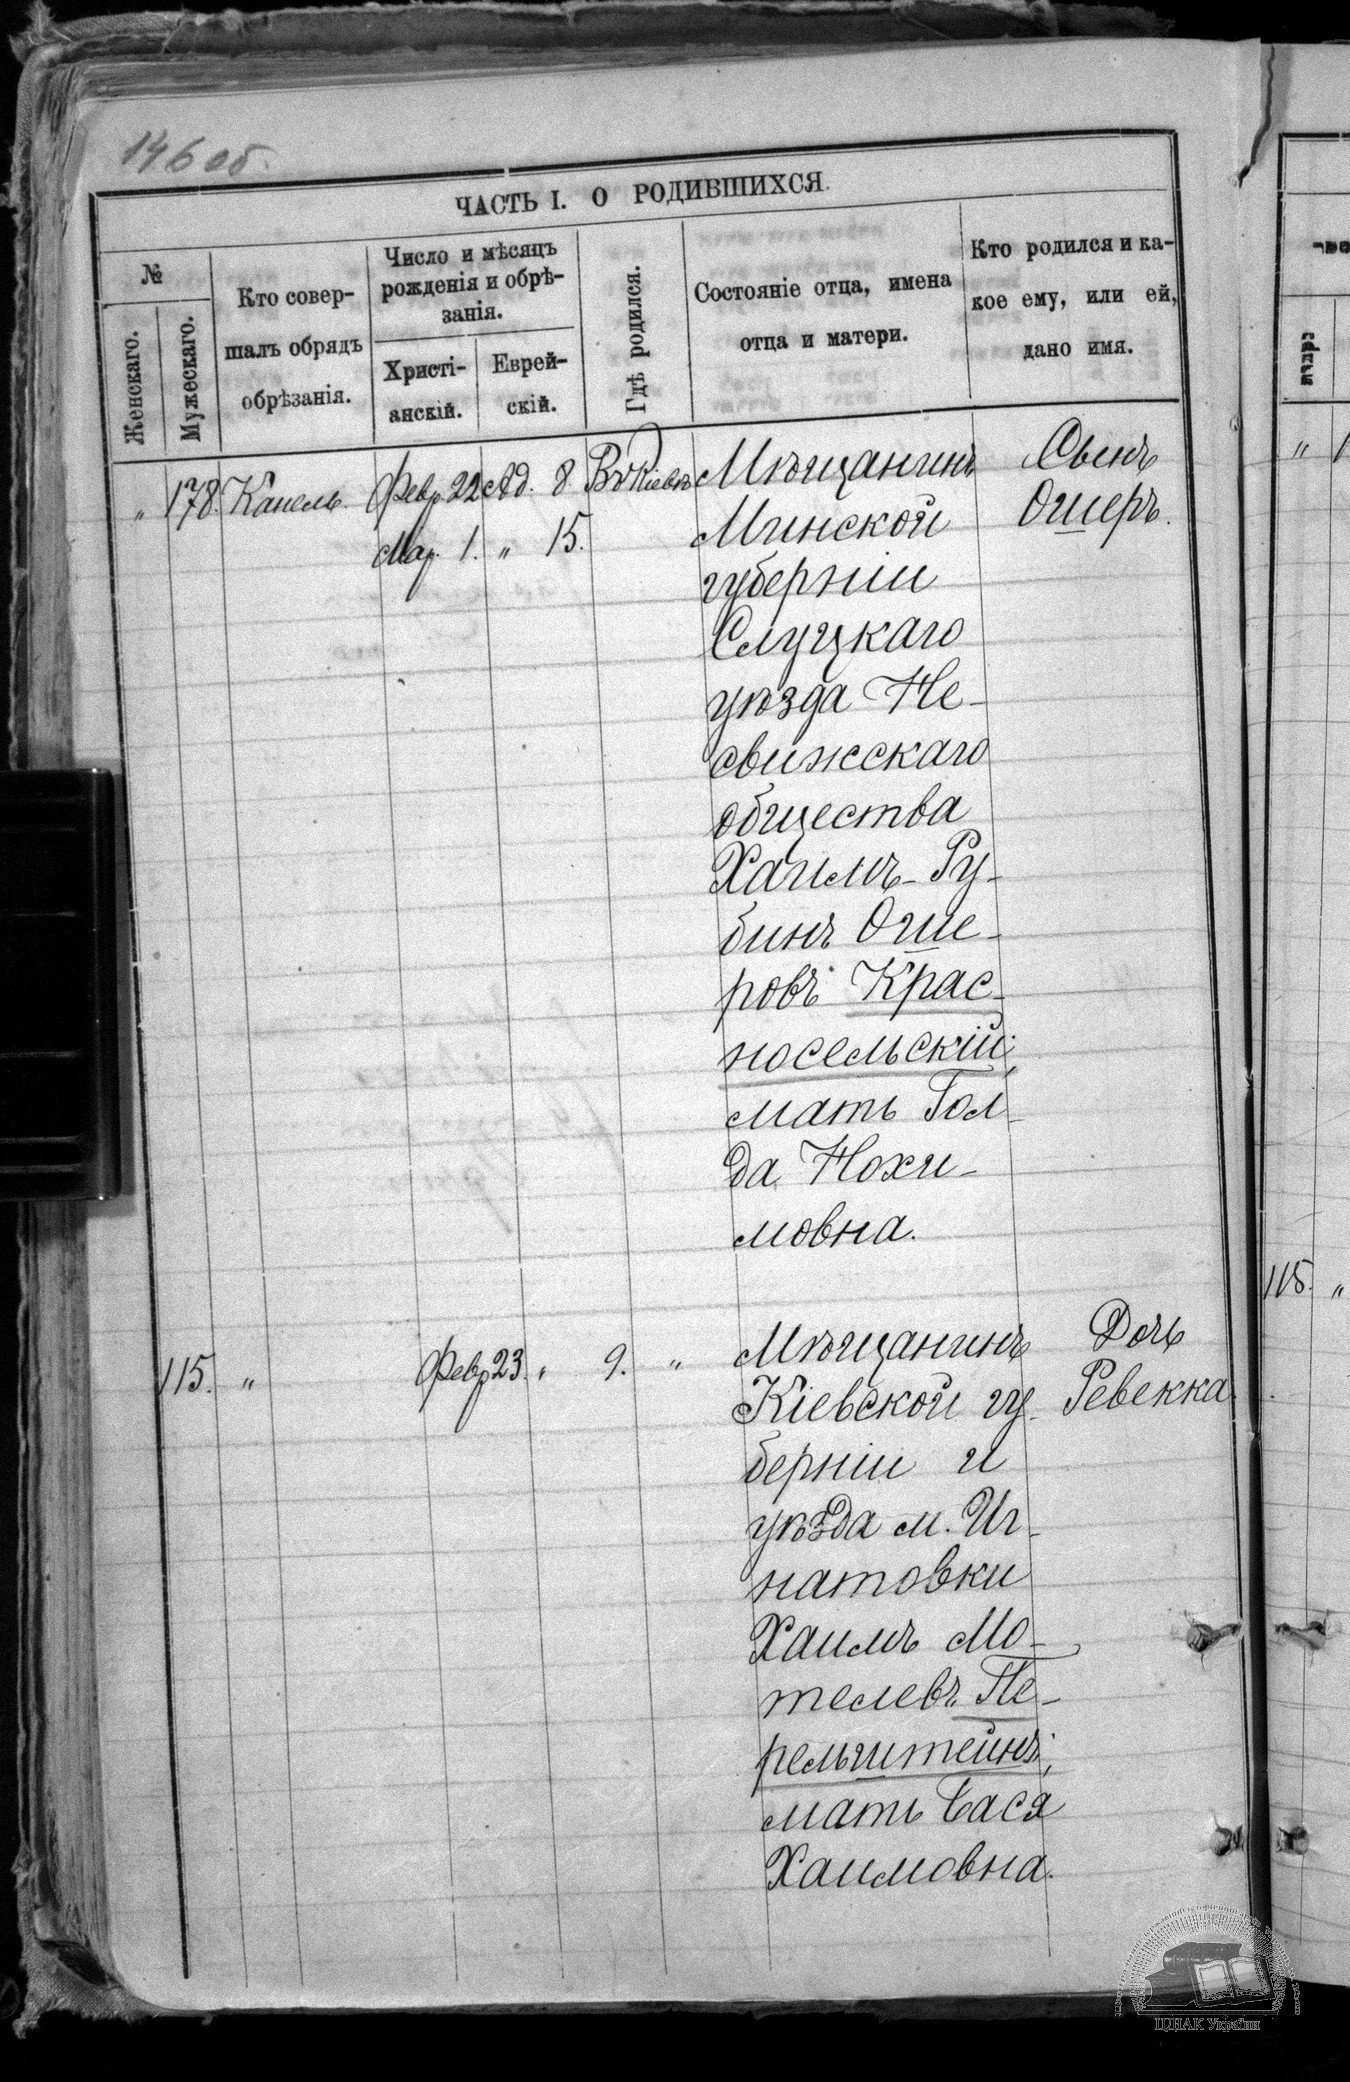 146 об.
ЧАСТЬ I. О РОДИВШИХСЯ.
№
Женскаго.
Мужескаго.
Кто совер-
шалъ обрядъ
обрѣзанія.
Число и мѣсяцъ
рожденія и обрѣ-
занія.
Христі-
анскій.
Еврей-
скій.
Гдѣ родился.
Состояніе отца, имена
отца и матери.
Кто родился и ка-
кое ему, или ей,
дано имя.
„ 178. Капель. Февр. 22 Ад. 8 Въ Кіевѣ
Мар. 1. „ 15.
Мѣщанинъ
Минской
губерніи
Слуцкаго
уѣзда Не-
свижскаго
общества
Хаимъ-Ру-
бинъ Оше-
ровъ Крас-
носельскій;
мать Гол-
да Нохи-
мовна.
Сынъ
Ошеръ.
115. „ Февр 23. „ 9. „
Мѣщанинъ
Кіевской гу-
берніи и
уѣзда м. Иг-
натовки
Хаимъ Мо-
телевъ Пе-
рельштейнъ;
мать Бася
Хаимовна.
Дочь
Ревекка.
„ 1
115. „
ЦДІАК України